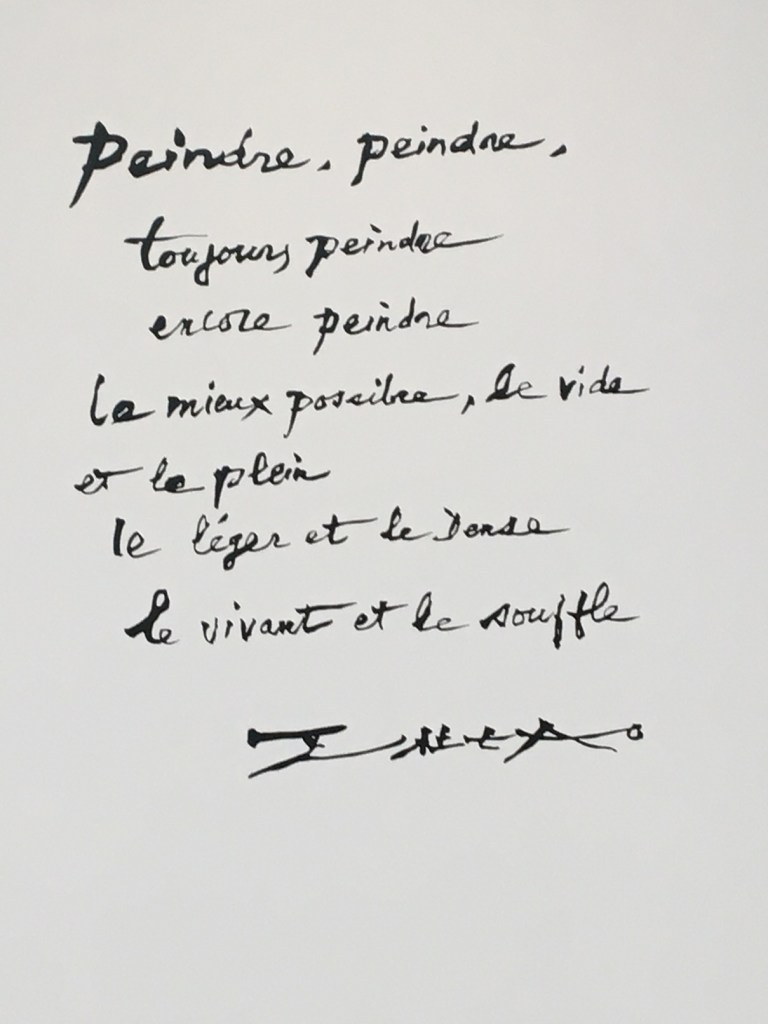 Peindre, peindre,
toujours peindre
encore peindre
le mieux possible, le vide
et le plein
le léger et le Dense
le vivant et le souffle